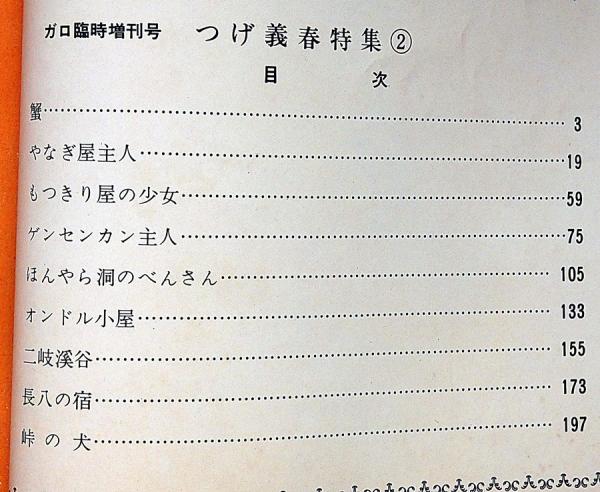 ガロ臨時増刊号 つげ義春特集②
目次
蟹……3
やなぎ屋主人……19
もつきり屋の少女……59
ゲンセンカン主人……75
ほんやら洞のべんさん……105
オンドル小屋……133
二岐溪谷……155
長八の宿……173
峠の犬……197